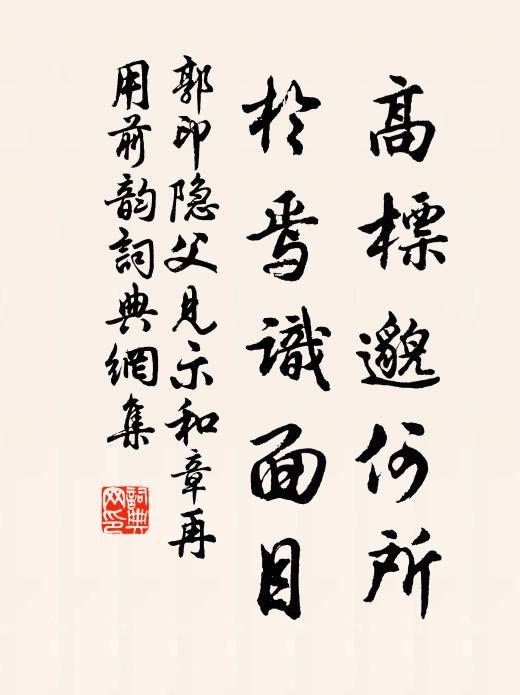 高標邈何所
於焉識面目
郭印隐父見示和章再
用前韵詞典網集
詞典网印